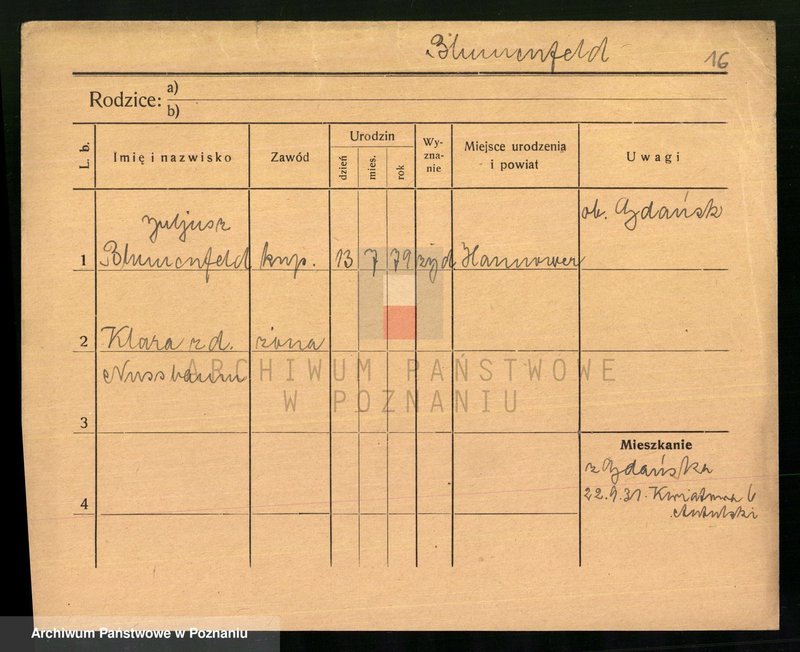 Blumenfeld 16
Rodzice: a)
b)
L. b. Imię i nazwisko Zawód Urodzin dzień mies. rok Wyzna-nie Miejsce urodzenia i powiat Uwagi
Juljusz ob. Gdańsk
1 Blumenfeld kup. 13 7 79 żyd Hannower
2 Klara z d. żona
Nussbaum
ARCHIWUM PAŃSTWOWE
W POZNANIU
3
Mieszkanie
z Gdańska
4 22.9.31. 6
Archiwum Państwowe w Poznaniu